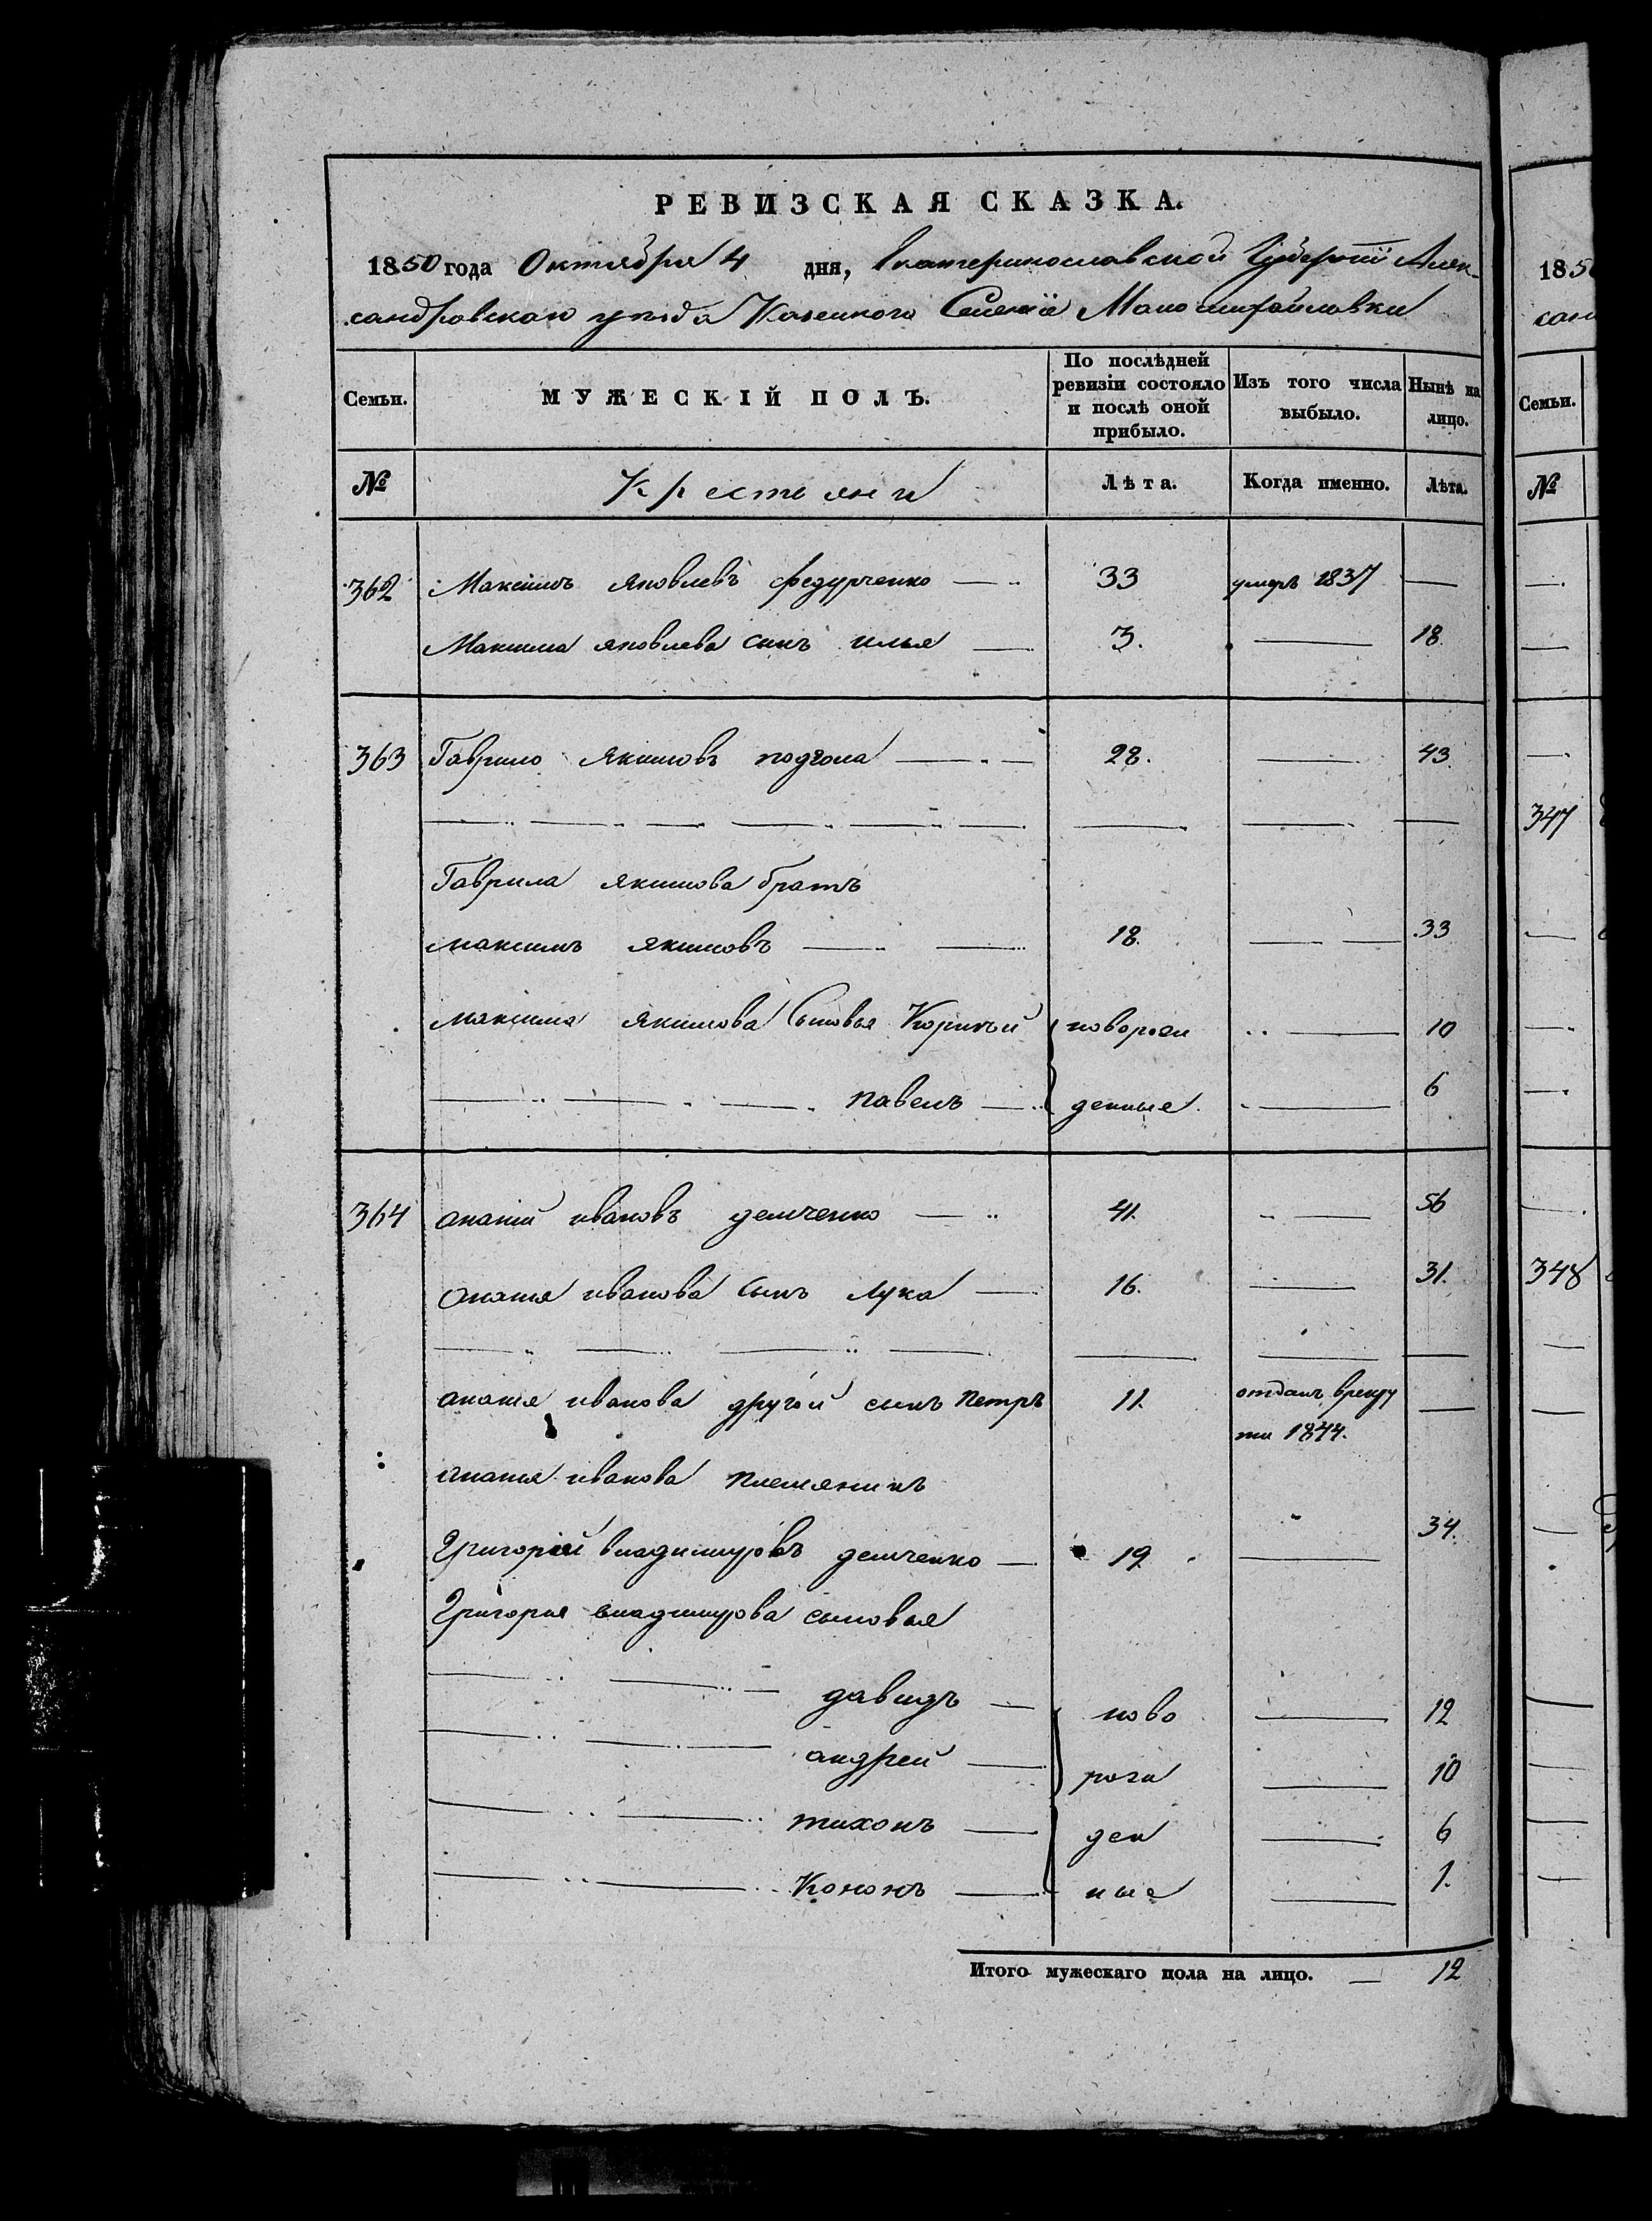 РЕВИЗСКАЯ СКАЗКА.
1850 года Октября 4 дня, Екатеринославской Губернии Алек-
сандровскаго уезда Казенного Селенiя Маломихайловки
Семьи. МУЖЕСКІЙ ПОЛЪ. По послѣдней ревизіи состояло и послѣ оной прибыло. Изъ того числа выбыло. Нынѣ на лицо.
№ Крестьяни Лѣта. Когда именно. Лѣта.
362 Максимъ яковлевъ федурченко 33 умеръ 1837 —
Максима яковлева сынъ илья 3. — 18.
363 Гаврило Якимовъ подгола 28. — 43.
Гаврила якимова братъ
максимъ якимовъ 18. — 33
максима якимова Сыновья Корнѣй новорож — 10
павелъ денные. — 6
364 ананiй ивановъ демченко 41. — 56
ананiя иванова сынъ лука 16. — 31.
ананiя иванова другой сынъ петръ 11. отданъ врекру —
ти 1844.
ананiя иванова племяникъ
Григорiй владимировъ демченко 19. — 34.
Григорiя владимирова сыновья
давидъ ново — 12
андрей рож — 10
тихонъ ден — 6
Кононъ ные — 1.
Итого мужескаго пола на лицо. — 12
185
сан
Семьи.
№
347
348